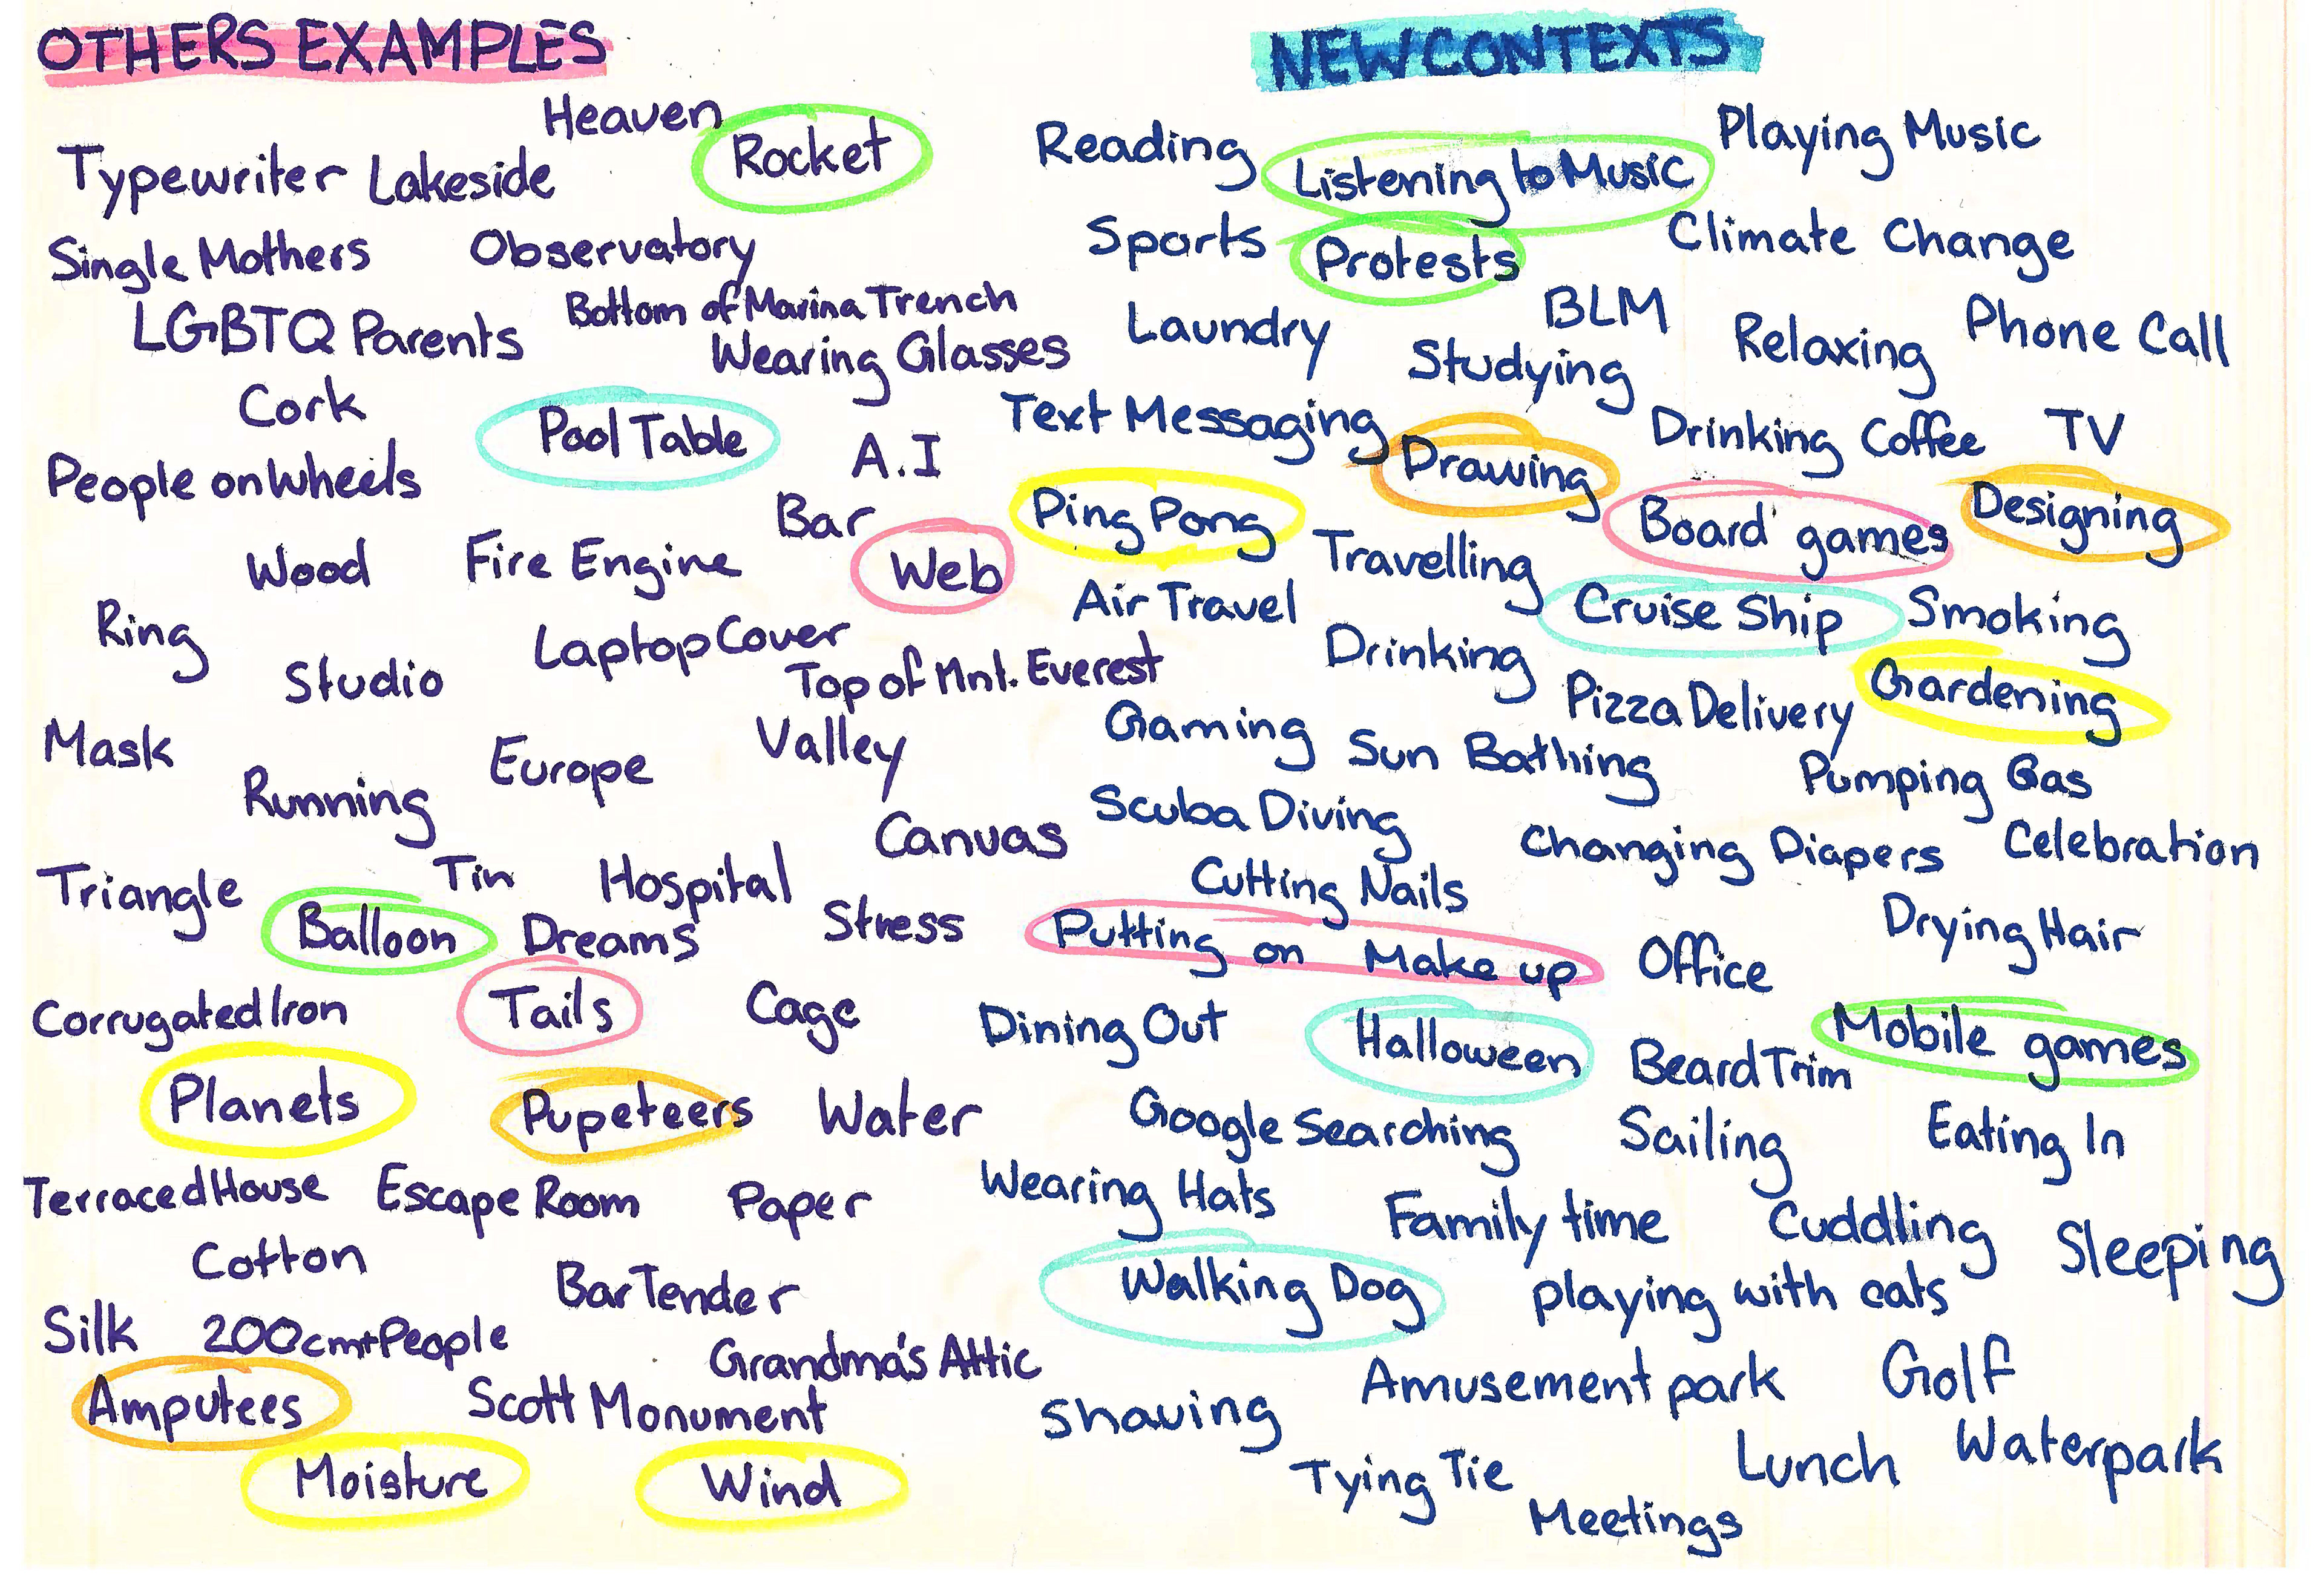 OTHERS EXAMPLES
Heaven
Rocket
Typewriter Lakeside
Single Mothers Observatory
LGBTQ Parents Bottom of Marina Trench
Wearing Glasses
Cork
Pool Table
A.I
People on Wheels
Bar
Wood Fire Engine Web
Ring
Laptop Cover
Studio Top of Mnt. Everest
Mask Europe Valley
Running
Canvas
Triangle Tin Hospital
Balloon Dreams Stress
Corrugated Iron Tails Cage
Planets Pupeteers Water
Terraced House Escape Room Paper
Cotton
Bar Tender
Silk 200cm+ People
Grandma's Attic
Amputees Scott Monument
Moisture Wind
NEW CONTEXTS
Reading Listening to Music Playing Music
Sports Protests Climate Change
Laundry BLM Phone Call
Studying Relaxing
Text Messaging Drinking Coffee TV
Drawing
Ping Pong Board games Designing
Travelling
Air Travel Cruise Ship Smoking
Drinking
Pizza Delivery Gardening
Gaming Sun Bathing
Pumping Gas
Scuba Diving
Changing Diapers Celebration
Cutting Nails
Putting on Make up Office Drying Hair
Dining Out Halloween Mobile games
Beard Trim
Google Searching Sailing Eating In
Wearing Hats
Family time Cuddling Sleeping
Walking Dog playing with cats
Amusement park Golf
Shaving
Tying Tie Lunch Waterpark
Meetings